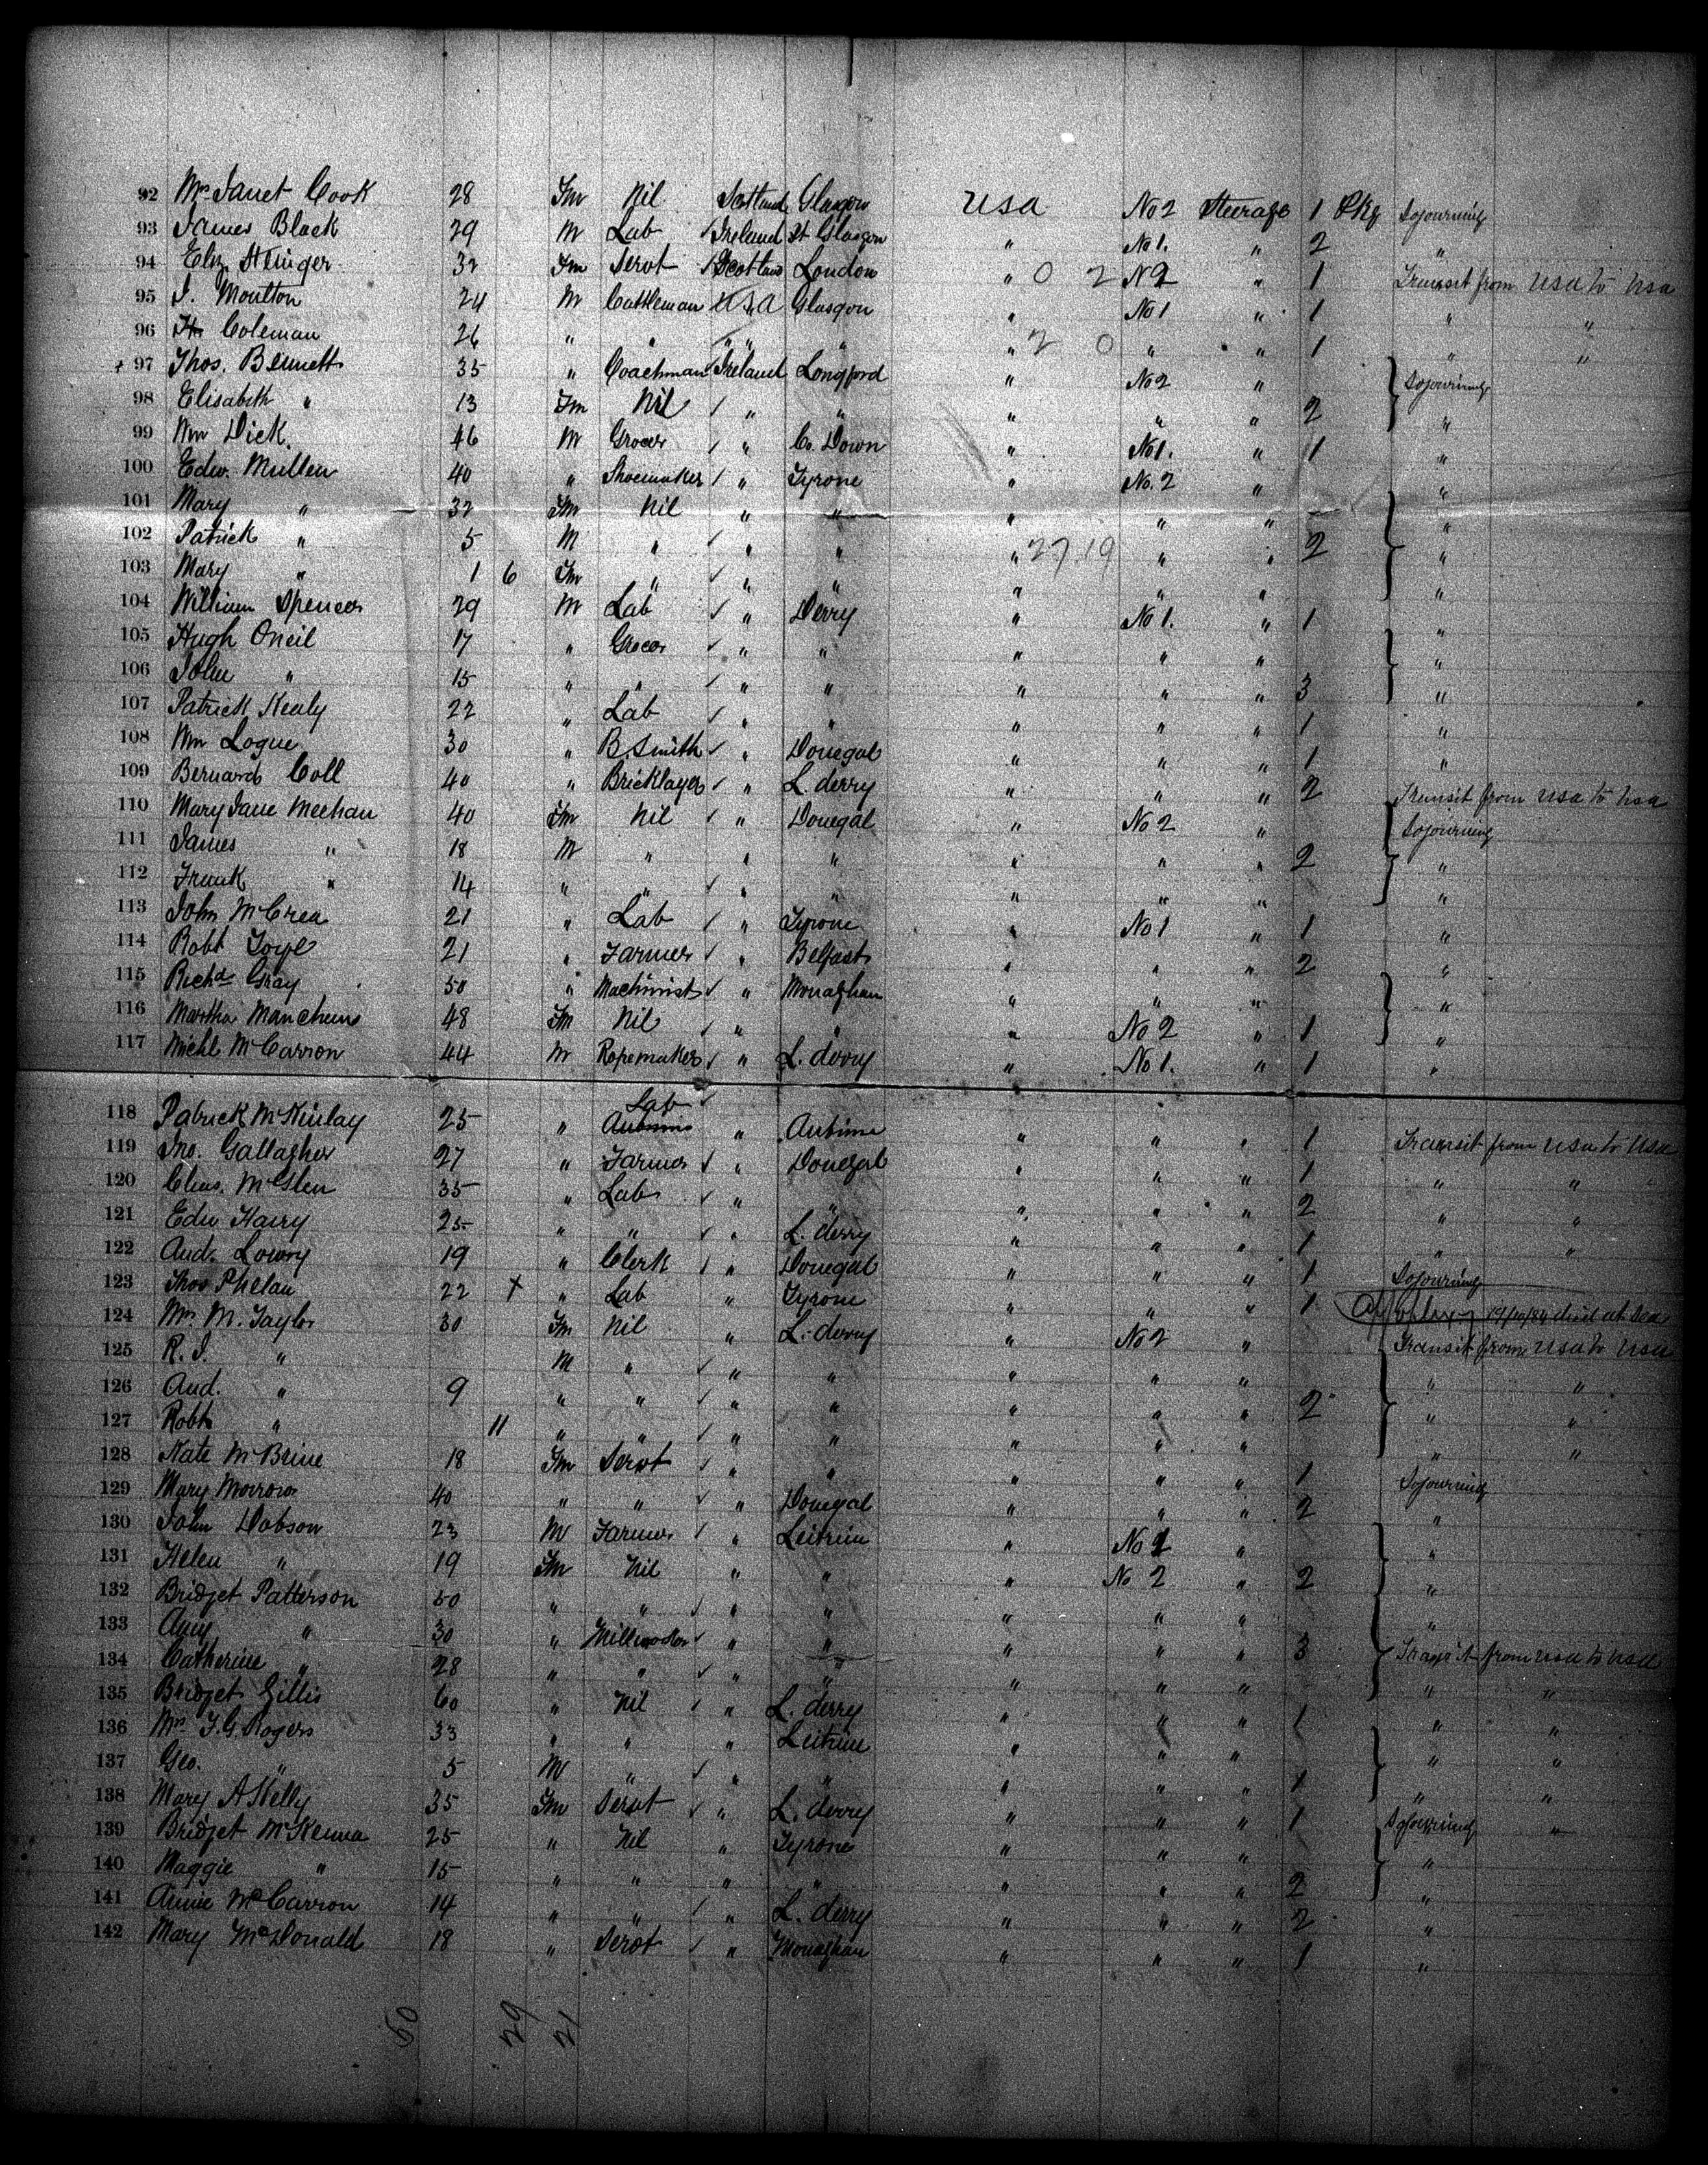 92 Mrs Janet Cook 28 Fm Nil Scotland Glasgow USA No 2 Steerage 1 Pkg Sojourning
93 James Black 29 M Lab Ireland Glasgow " No 1. " 2 "
94 Eliz. Stinger 32 Fm Servt Scotland London " 0 2 No 2 " 1 Transit from USA to USA
95 J. Moulton 24 M Cattleman USA Glasgow " No 1 " 1 " "
96 Coleman 26 " " " " " " 2 0 " " 1 " "
+ 97 Thos. Bennett 35 " Coachman Ireland Longford " No 2 " Sojourning
98 Elisabeth " 13 Fm Nil " " " " " 2 "
99 Wm Dick. 46 M Grocer " Co. Down " No 1. " 1 "
100 Edw. Mullen 40 " Shoemaker " Tyrone " No. 2 " "
101 Mary " 32 Fm Nil " " " " " "
102 Patrick " 5 M " " " " 27.19 " " 2 "
103 Mary " 1 6 Fm " " " " " " "
104 William Spencer 29 M Lab " Derry " No 1. " 1 "
105 Hugh Oneil 17 " Grocer " " " " " "
106 John " 15 " " " " " " " 3 "
107 Patrick Kealy 22 " Lab " " " " " 1 "
108 Wm Logue 30 " B. Smith " Donegal " " " 1 "
109 Bernard Coll 40 " Bricklayer " L. derry " " " 2 Transit from USA to USA
110 Mary Jane Meehan 40 Fm Nil " Donegal " No 2 " Sojourning
111 James " 18 M " " " " " " 2 "
112 Frank " 14 " " " " " " " "
113 John McCrea 21 " Lab " Tyrone " No 1 " 1 "
114 Robt Toye 21 " Farmer " Belfast " " " 2 "
115 Richd Gray 50 " Machinist " Monaghan " " " "
116 Martha 48 Fm Nil " " " No 2 " 1 "
117 Michl McCarron 44 M Ropemaker " L. derry " No 1. " 1 "
118 Patrick McKinlay 25 " Lab " " " " 1 Transit from USA to USA
119 Jno. Gallagher 27 " Farmer " Donegal " " " 1 " "
120 Chas. McGlen 35 " Lab " " " " " 2 " "
121 Edw Harry 25 " " " L. derry " " " 1 " "
122 And. Lowry 19 " Clerk " Donegal " " " 1 Sojourning
123 Thos Phelan 22 X " Lab " Tyrone " " " 1 19/10/84 died at Sea
124 Mrs M. Taylor 30 Fm Nil " L. derry " No 2 " Transit from USA to USA
125 R. J. " M " " " " " " " "
126 And. " 9 " " " " " " " 2 " "
127 Robt " 11 " " " " " " " " "
128 Kate McBrine 18 Fm Servt " " " " " 1 Sojourning
129 Mary Morrow 40 " " " Donegal " " " 2 "
130 John Dobson 23 M Farmer " Leitrim " No 1 " "
131 Helen " 19 Fm Nil " " " No 2 " 2 "
132 Bridget Patterson 50 " " " " " " " "
133 Amy " 30 " Millworker " " " " " 3 Transit from USA to USA
134 Catherine " 28 " " " " " " " " "
135 Bridget Gillis 60 " Nil " L. derry " " " 1 " "
136 Mrs F. G. Rogers 33 " " " Leitrim " " " " "
137 Geo. " 5 M " " " " " " 1 " "
138 Mary A Kelly 35 Fm Servt " L. derry " " " 1 Sojourning "
139 Bridget McKenna 25 " Nil " Tyrone " " " "
140 Maggie " 15 " " " " " " " 2 "
141 Annie McCarron 14 " " " L. derry " " " 2 "
142 Mary McDonald 18 " Servt " Monaghan " " " 1 "
50 29 21